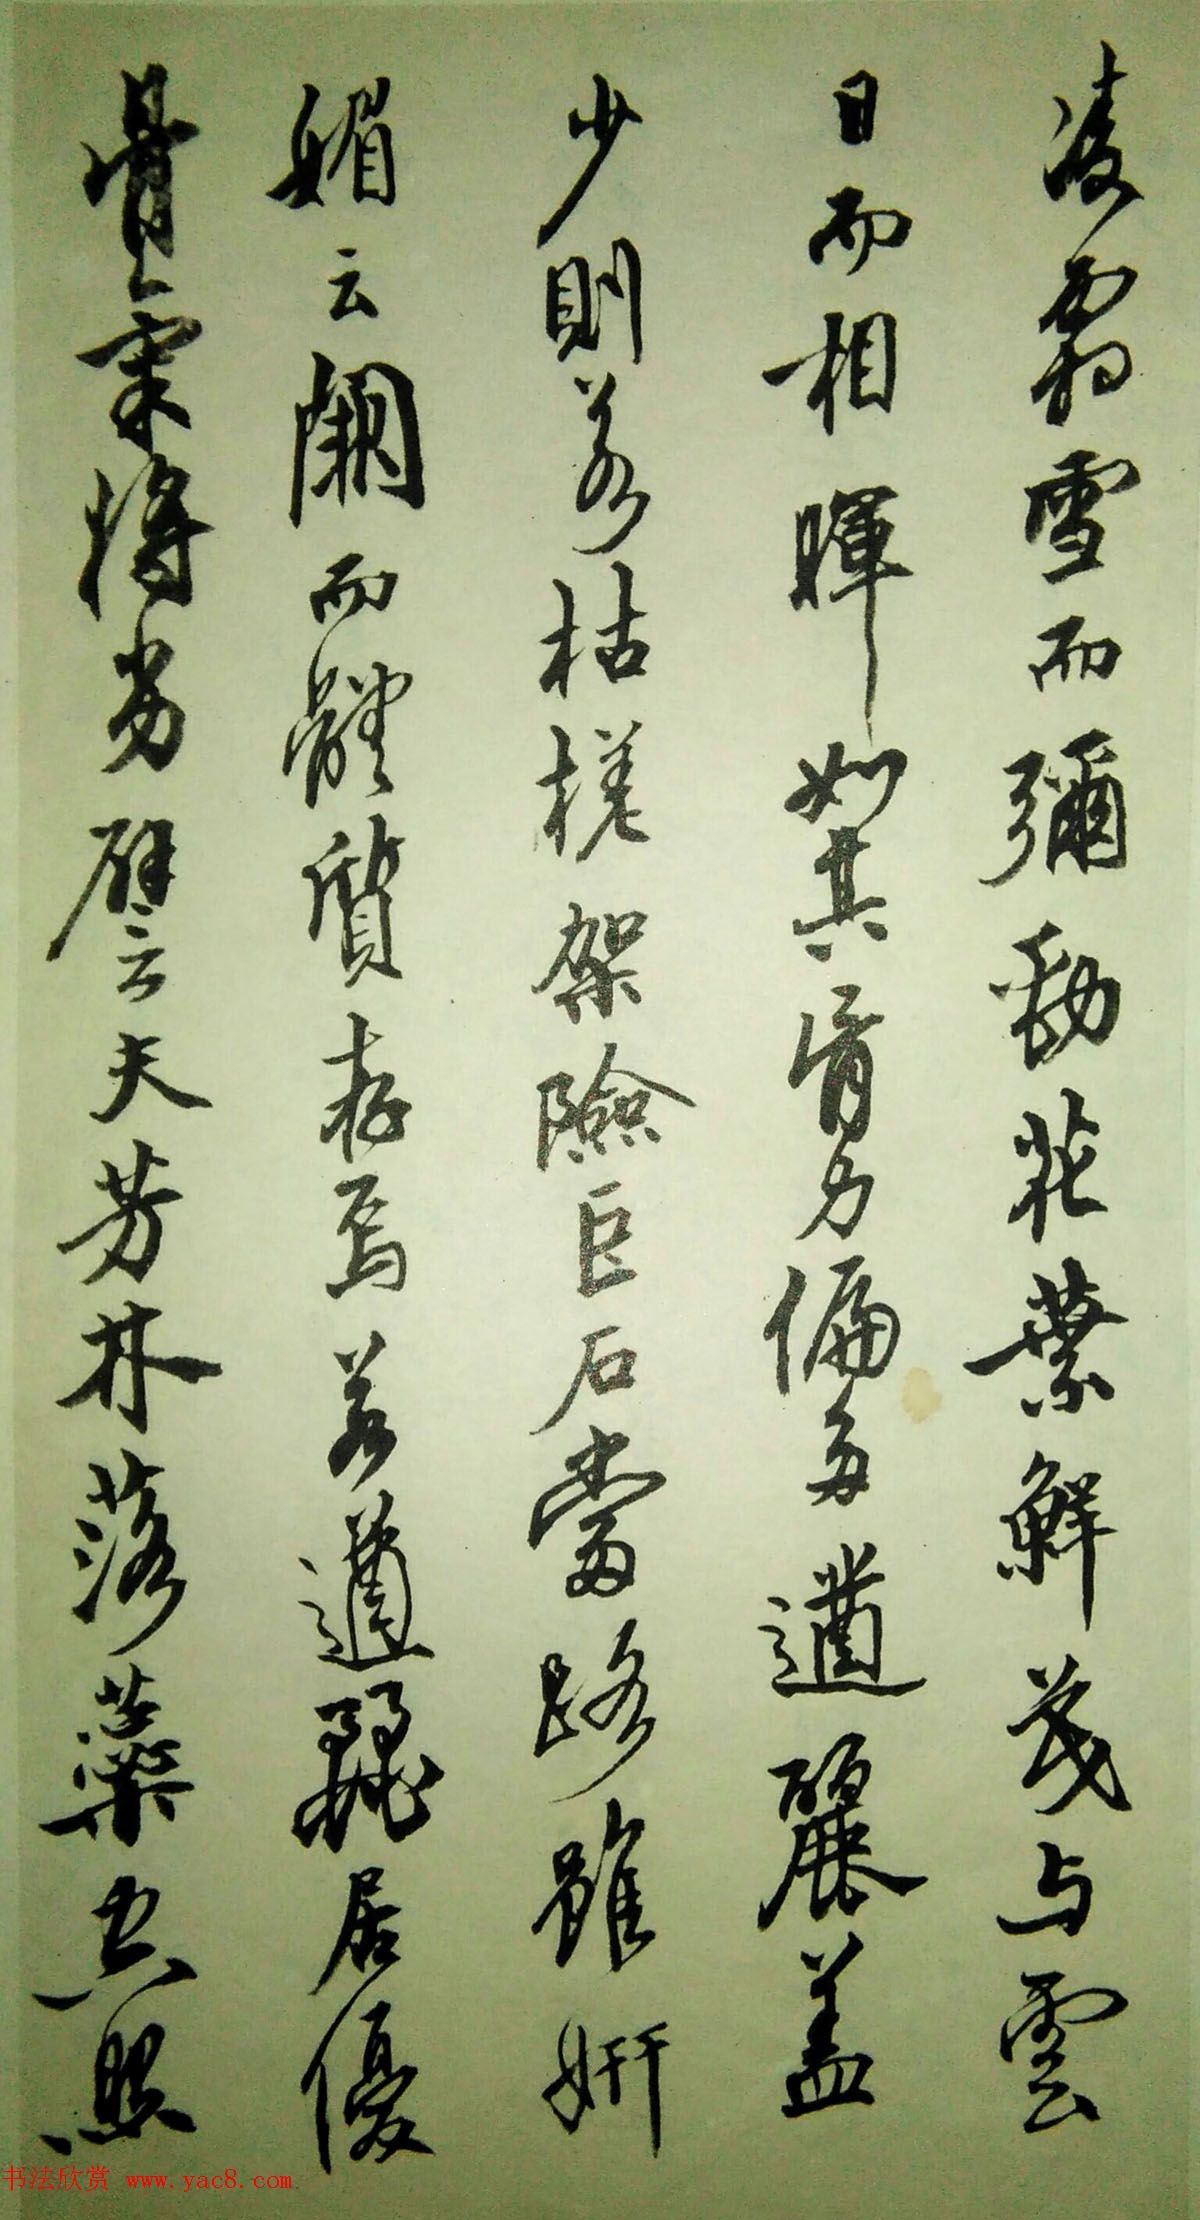 凌霜雪而彌勁花葉鮮茂与雲
日而相暉如其骨力偏多遒麗盖
少則若枯槎架險巨石當路雖妍
媚云闕而體質存焉若遒麗居優
骨氣将劣譬云夫芳林落蘂空照
书法欣赏 www.yac8.com